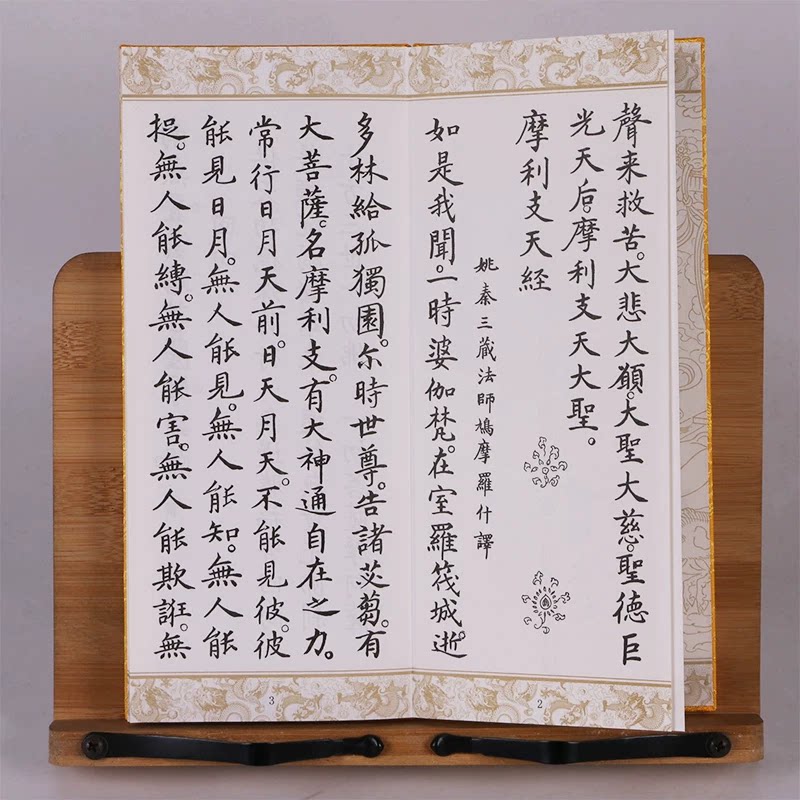 聲来救苦。大悲大願。大聖大慈。聖德巨
光天后。摩利支天大聖。
摩利支天経
姚秦三蔵法師鳩摩羅什譯
如是我聞。一時婆伽梵。在室羅筏城。逝
2
多林給孤獨園。尒時世尊。告諸苾蒭。有
大菩薩。名摩利支。有大神通自在之力。
常行日月天前。日天月天。不能見彼。彼
能見日月。無人能見。無人能知。無人能
捉。無人能縛。無人能害。無人能欺誑。無
3